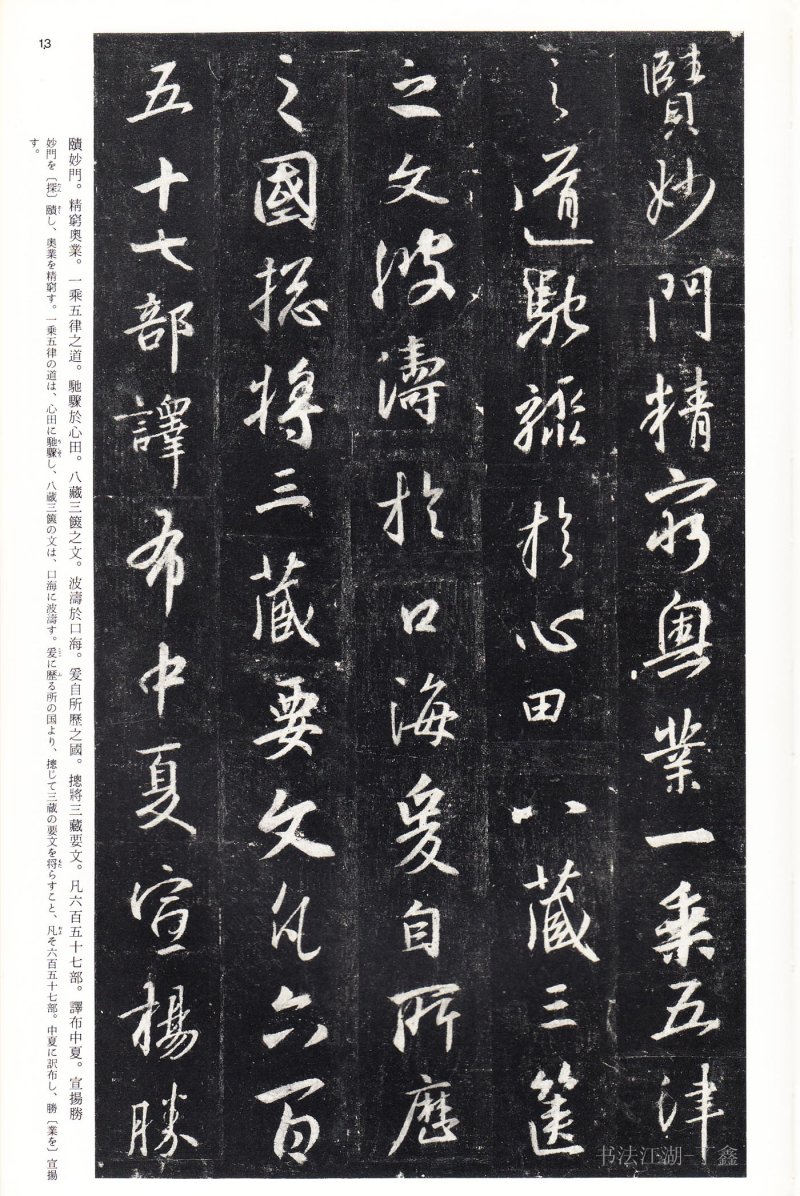 賾妙門精窮奧業一乘五律
之道馳驟於心田八藏三篋
之文波濤於口海爰自所歷
之國揔將三藏要文凡六百
五十七部譯布中夏宣楊勝
13
賾妙門。精窮奧業。一乘五律之道。馳驟於心田。八藏三篋之文。波濤於口海。爰自所歷之國。摠將三藏要文。凡六百五十七部。譯布中夏。宣揚勝
妙門を〔探〕賾し、奥業を精窮す。一乗五律の道は、心田に馳驟し、八蔵三篋の文は、口海に波濤す。爰に歴る所の国より、摠じて三蔵の要文を将らすこと、凡そ六百五十七部。中夏に訳布し、勝〔業を〕宣揚
す。
书法江湖-丁鑫